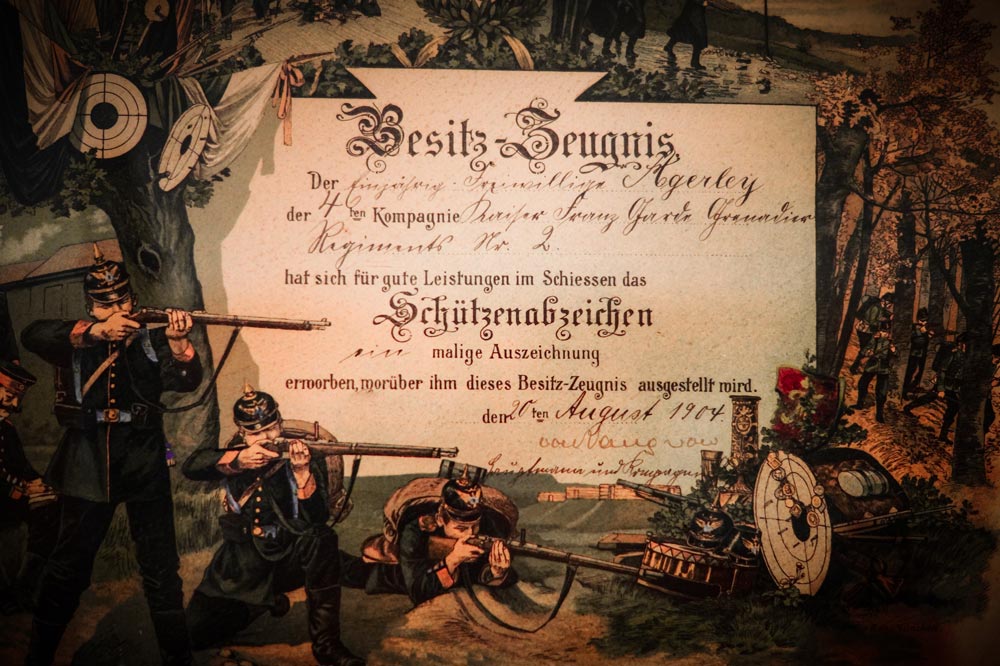 Besitz-Zeugnis
Der Einjährig-Freiwillige Agerley
der 4ten Kompagnie Kaiser Franz Garde Grenadier
Regiments Nr. 2.
hat sich für gute Leistungen im Schiessen das
Schützenabzeichen
ein malige Auszeichnung
erworben, worüber ihm dieses Besitz-Zeugnis ausgestellt wird.
den 20ten August 1904
Hauptmann und